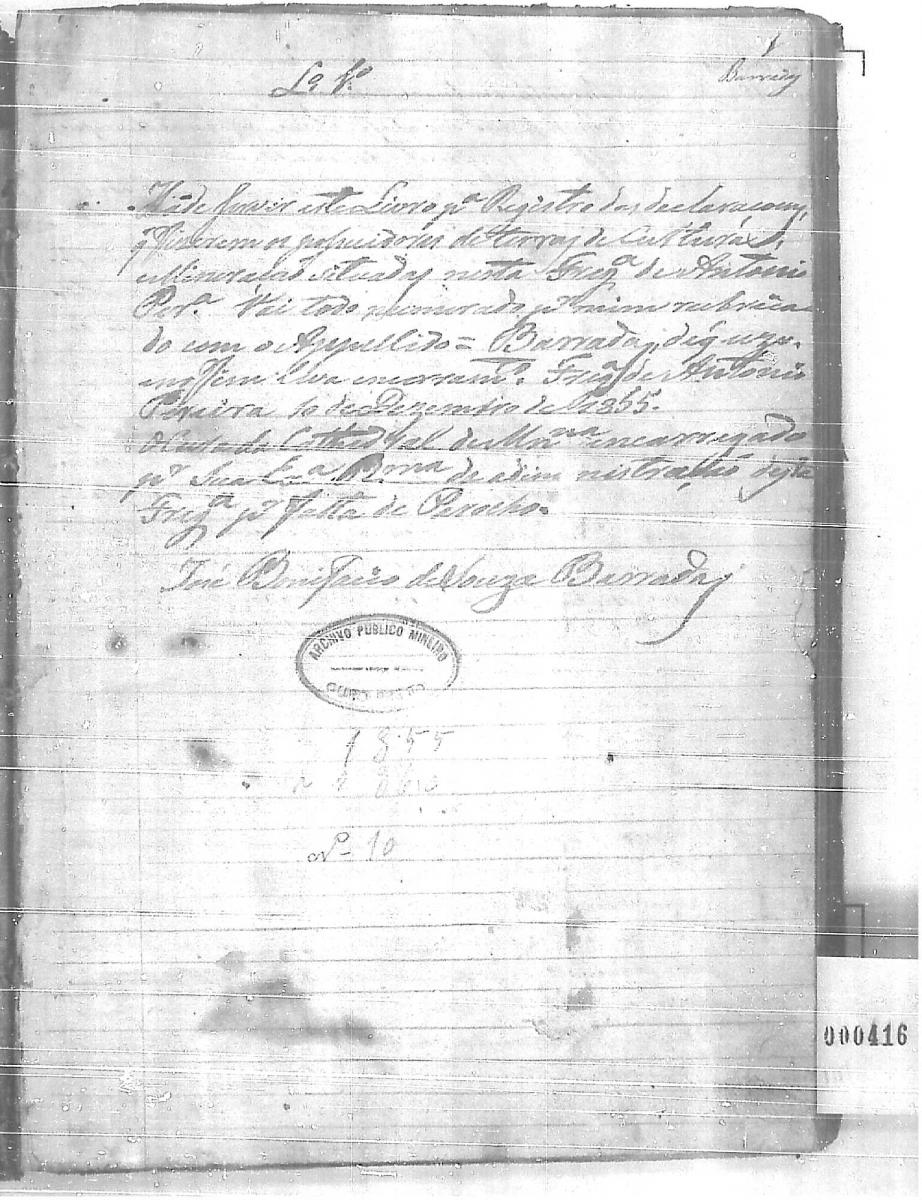 1
Barradas
L.º 1.º
Hade servir este Livro p.ª Registro das declaracoens,
q̃ fizerem os possuidores de terras de Cultura,
e Mineração situadas nesta Freg.ª de Antonio
Per.ª Vai todo numerado, p.r mim rubrica
do com o Appellido = Barradas, de q̃ uzo.
e no fim leva encerram.º Freg.ª de Antonio
Pereira 10 de Dezembro de 1855.
O Cura da Cathedral de Mar.na encarregado
p.r Sua Ex.ª R.ma da administração desta
Freg.ª p.r falta de Parocho.
José Bonifacio de Souza Barradas
ARCHIVO PUBLICO MINEIRO
OURO PRETO
1855
Nº 10
000416